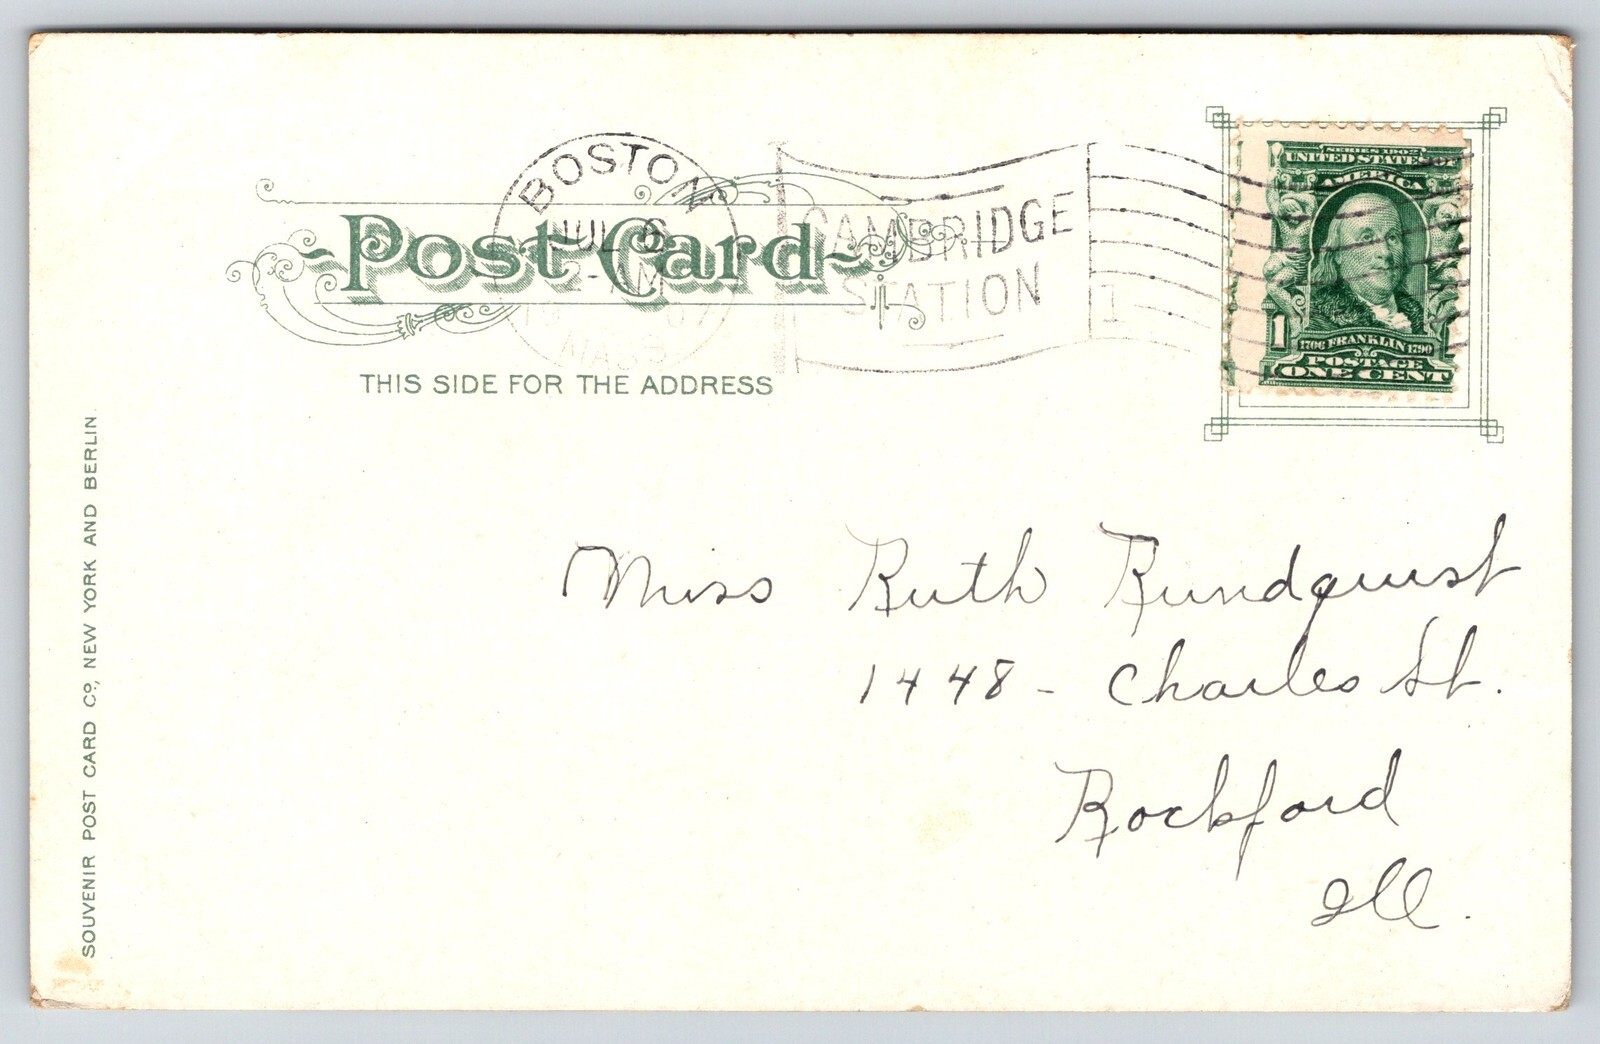 BOSTON
JUL 6
2-AM
07
MASS
CAMBRIDGE
STATION
1
Post Card
THIS SIDE FOR THE ADDRESS
SERIES 1902
UNITED STATES OF
AMERICA
1
1706 FRANKLIN 1790
POSTAGE
ONE CENT
Miss Ruth Rundquist
1448 - Charles St.
Rockford
Ill.
SOUVENIR POST CARD Co., NEW YORK AND BERLIN.